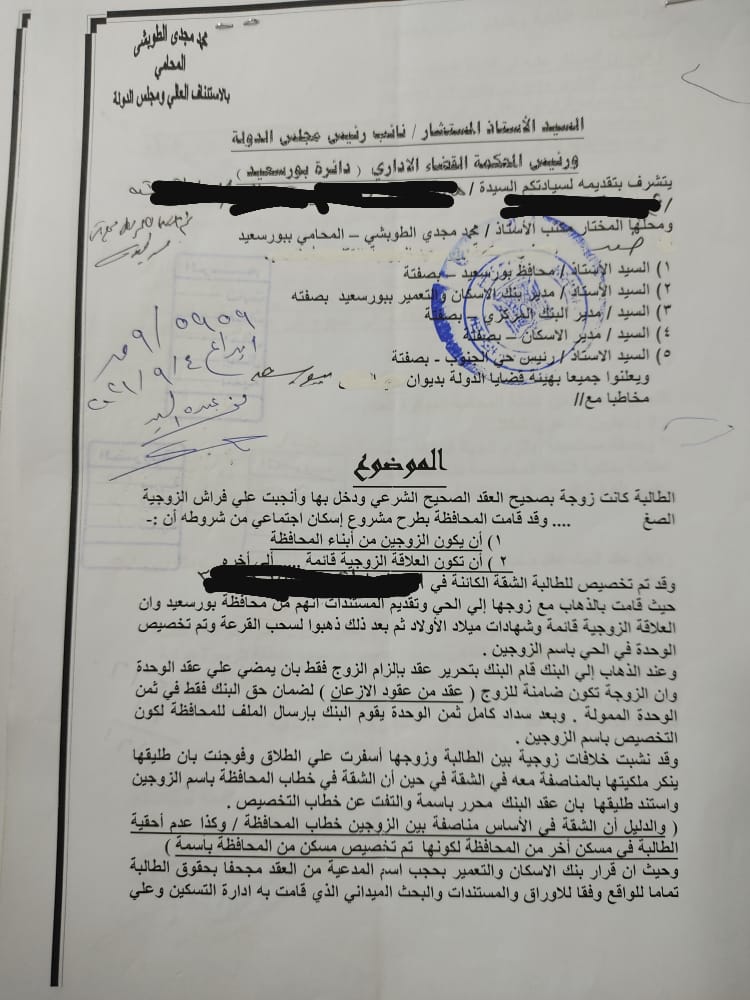 محمد مجدى الطوبشى
المحامي
بالاستئناف العالي ومجلس الدولة
السيد الأستاذ المستشار / نائب رئيس مجلس الدولة
ورئيس المحكمة القضاء الاداري ( دائرة بورسعيد )
يتشرف بتقديمه لسيادتكم السيدة /
ومحلها المختار مكتب الأستاذ / محمد مجدي الطوبشي – المحامي ببورسعيد
ضد
١) السيد الأستاذ / محافظ بورسعيد – بصفتة
٢) السيد الأستاذ / مدير بنك الاسكان والتعمير ببورسعيد بصفته
٣) السيد / مدير البنك المركزي – بصفتة
٤) السيد / مدير الاسكان – بصفتة
٥) السيد الاستاذ / رئيس حي الجنوب - بصفتة
ويعلنوا جميعا بهيئة قضايا الدولة بديوان
مخاطبا مع//
٥٩٥٩ / ٩
ايداع ٤ / ٩ / ٢٠٢١
الموضوع
الطالبة كانت زوجة بصحيح العقد الصحيح الشرعي ودخل بها وأنجبت علي فراش الزوجية
الصغ .... وقد قامت المحافظة بطرح مشروع إسكان اجتماعي من شروطه أن :-
١) أن يكون الزوجين من أبناء المحافظة
٢) أن تكون العلاقة الزوجية قائمة .... إلي أخره
وقد تم تخصيص للطالبة الشقة الكائنة في
حيث قامت بالذهاب مع زوجها إلي الحي وتقديم المستندات انهم من محافظة بورسعيد وان
العلاقة الزوجية قائمة وشهادات ميلاد الأولاد ثم بعد ذلك ذهبوا لسحب القرعة وتم تخصيص
الوحدة في الحي باسم الزوجين .
وعند الذهاب إلي البنك قام البنك بتحرير عقد بإلزام الزوج فقط بان يمضي علي عقد الوحدة
وان الزوجة تكون ضامنة للزوج ( عقد من عقود الازعان ) لضمان حق البنك فقط في ثمن
الوحدة الممولة . وبعد سداد كامل ثمن الوحدة يقوم البنك بإرسال الملف للمحافظة لكون
التخصيص باسم الزوجين .
وقد نشبت خلافات زوجية بين الطالبة وزوجها أسفرت علي الطلاق وفوجئت بان طليقها
ينكر ملكيتها بالمناصفة معه في الشقة في حين أن الشقة في خطاب المحافظة باسم الزوجين
واستند طليقها بان عقد البنك محرر باسمة والتفت عن خطاب التخصيص .
( والدليل أن الشقة في الأساس مناصفة بين الزوجين خطاب المحافظة / وكذا عدم أحقية
الطالبة في مسكن أخر من المحافظة لكونها تم تخصيص مسكن من المحافظة بأسمة )
وحيث ان قرار بنك الاسكان والتعمير بحجب اسم المدعية من العقد مجحفا بحقوق الطالبة
تماما للواقع وفقا للاوراق والمستندات والبحث الميداني الذي قامت به ادارة التسكين وعلي